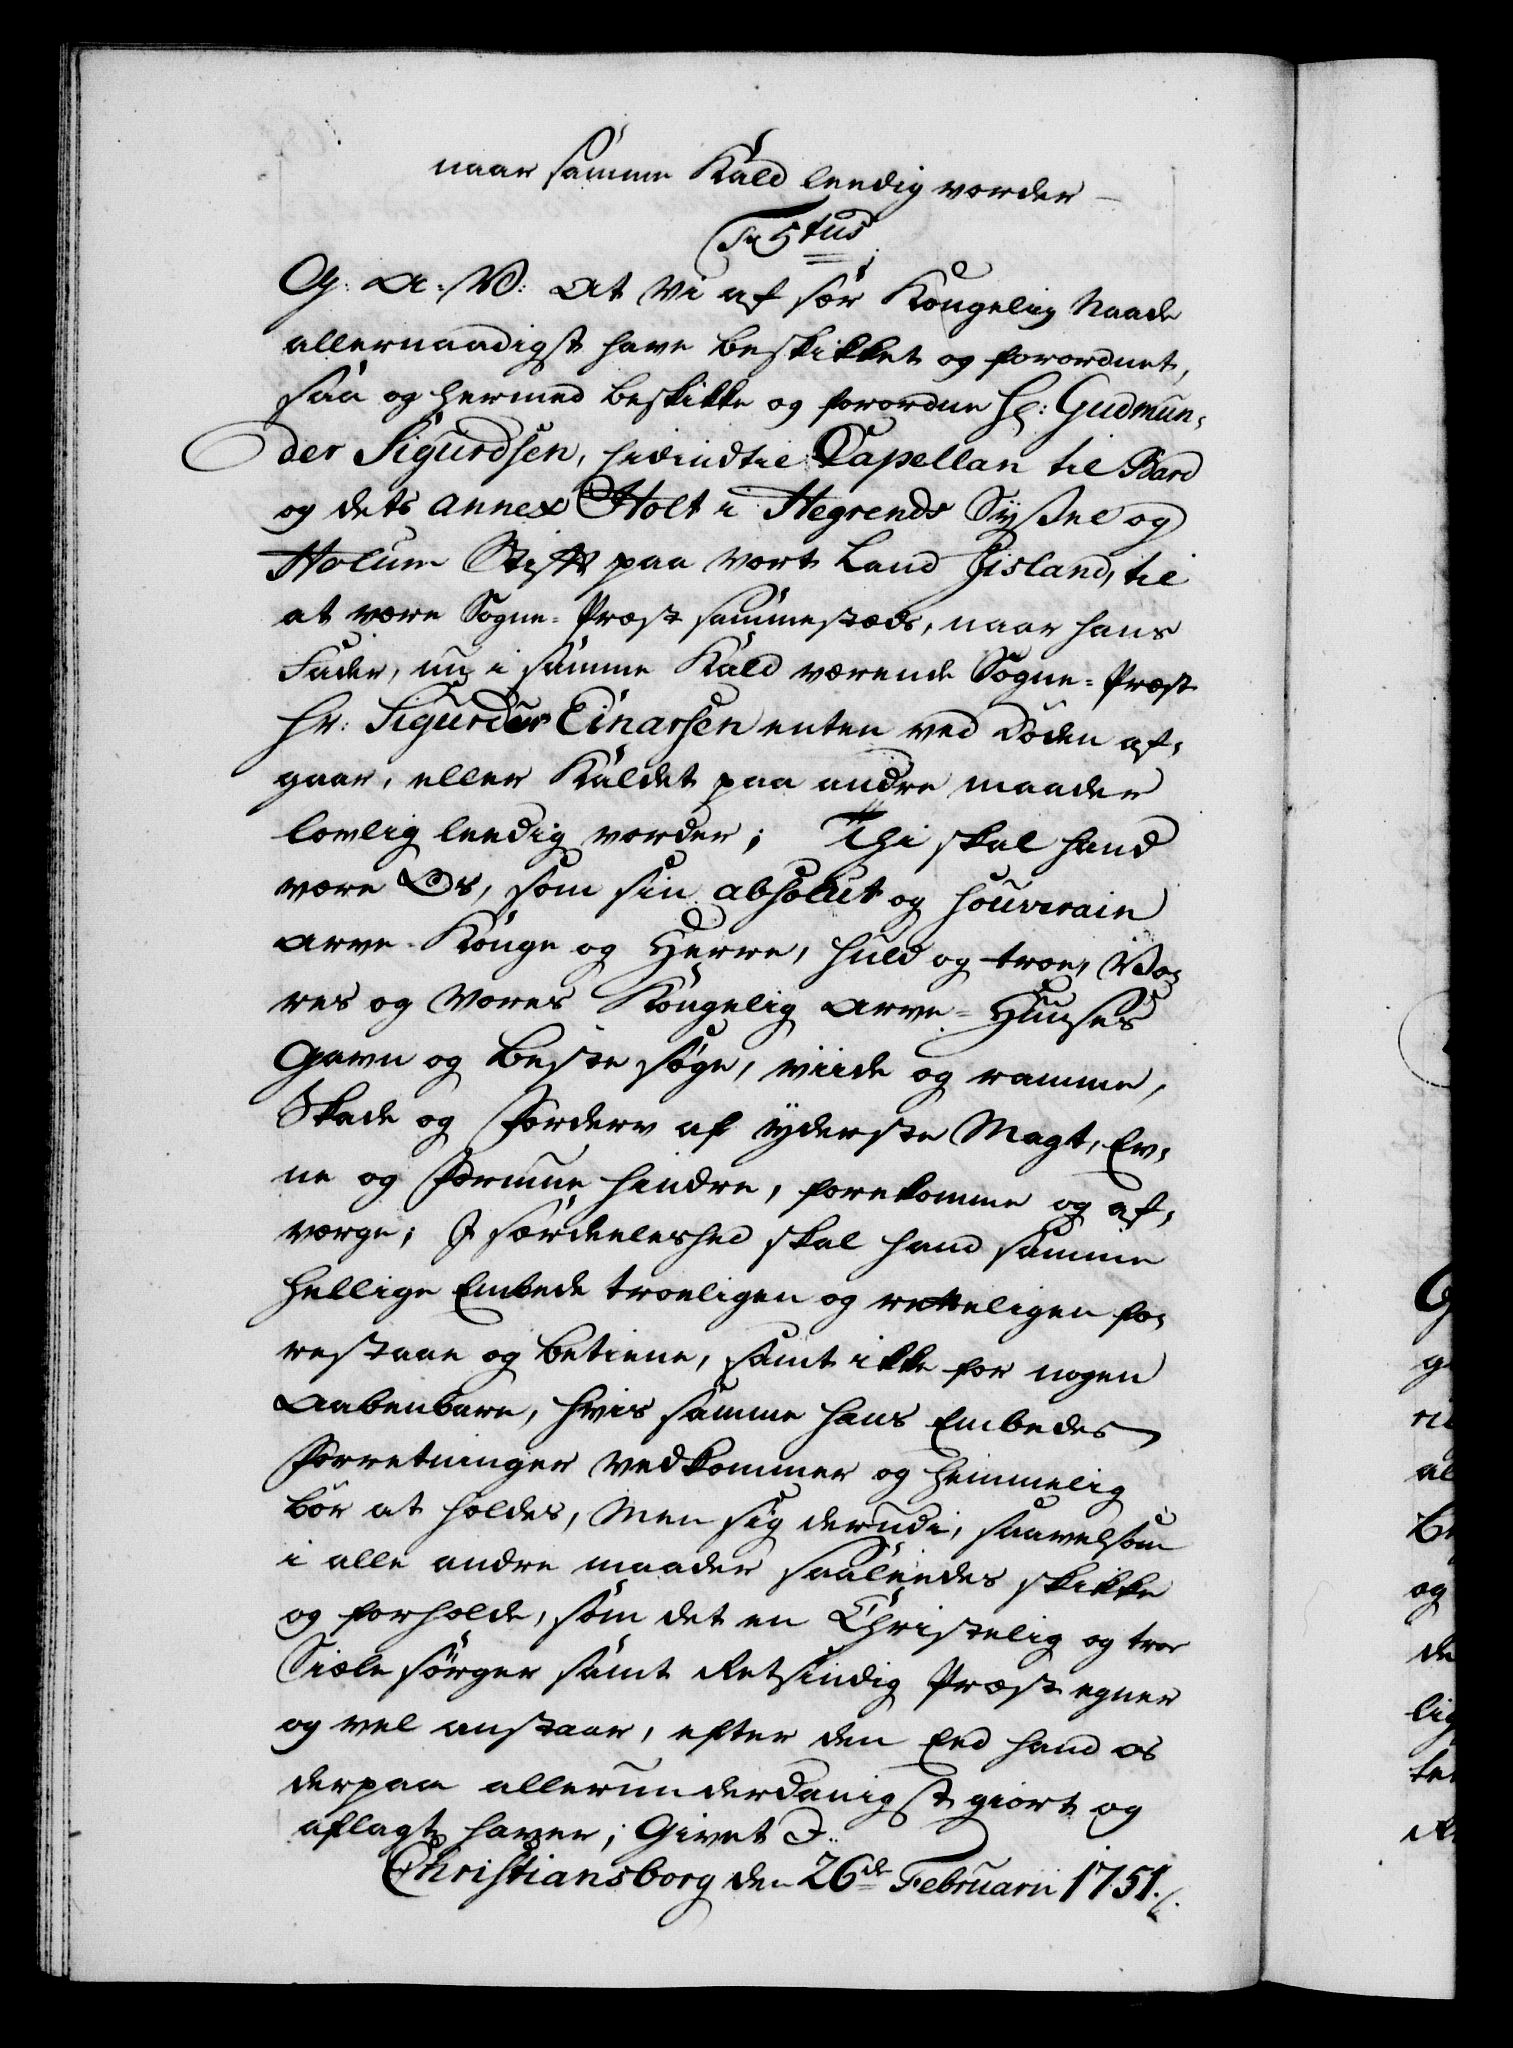 naar samme Kald leedig vorder
F 5tus
G: A: V: At Vi af sær Kongelig Naade
allernaadigst have beskikket og forordnet,
saa og hermed beskikke og forordne Hr: Gudmun-
der Sigurdsen, hidindtil Capellan til Bard
og dets annex Holt i Hegrends Syssel og
Holum Stift paa vort Land Jisland, til
at være Sogne-Præst sammesteds, naar hans
Fader, nu i samme Kald værende Sogne-Præst
Hr: Sigurdur Einarsen enten ved Døden af-
gaar, eller Kaldet paa andre maader
lovlig leedig vorder; Thi skal hand
være Os, som sin absolut og souverain
Arve-Konge og Herre, huld og troe, Vo-
res og Vores Kongelig Arve-Huuses
Gavn og beste søge, viide og ramme,
Skade og Forderv af yderste Magt, Ev-
ne og Formue hindre, forekomme og af-
værge; J særdeleshed skal hand samme
hellige Embede troeligen og retteligen fo-
restaae og betiene, samt ikke for nogen
Aabenbare, hvis samme hans Embedes
Forretninger vedkommer og hemmelig
bør at holdes, Men sig derudi, saavelsom
i alle andre maader saaleedes skikke
og forholde, som det en Christelig og troe
Siæle sørger samt Retsindig Præst egner
og vel anstaar, efter den Eed hand os
derpaa allerunderdanigst giort og
aflagt haver; Givet J..
Christiansborg den 26de Februarii 1751./.